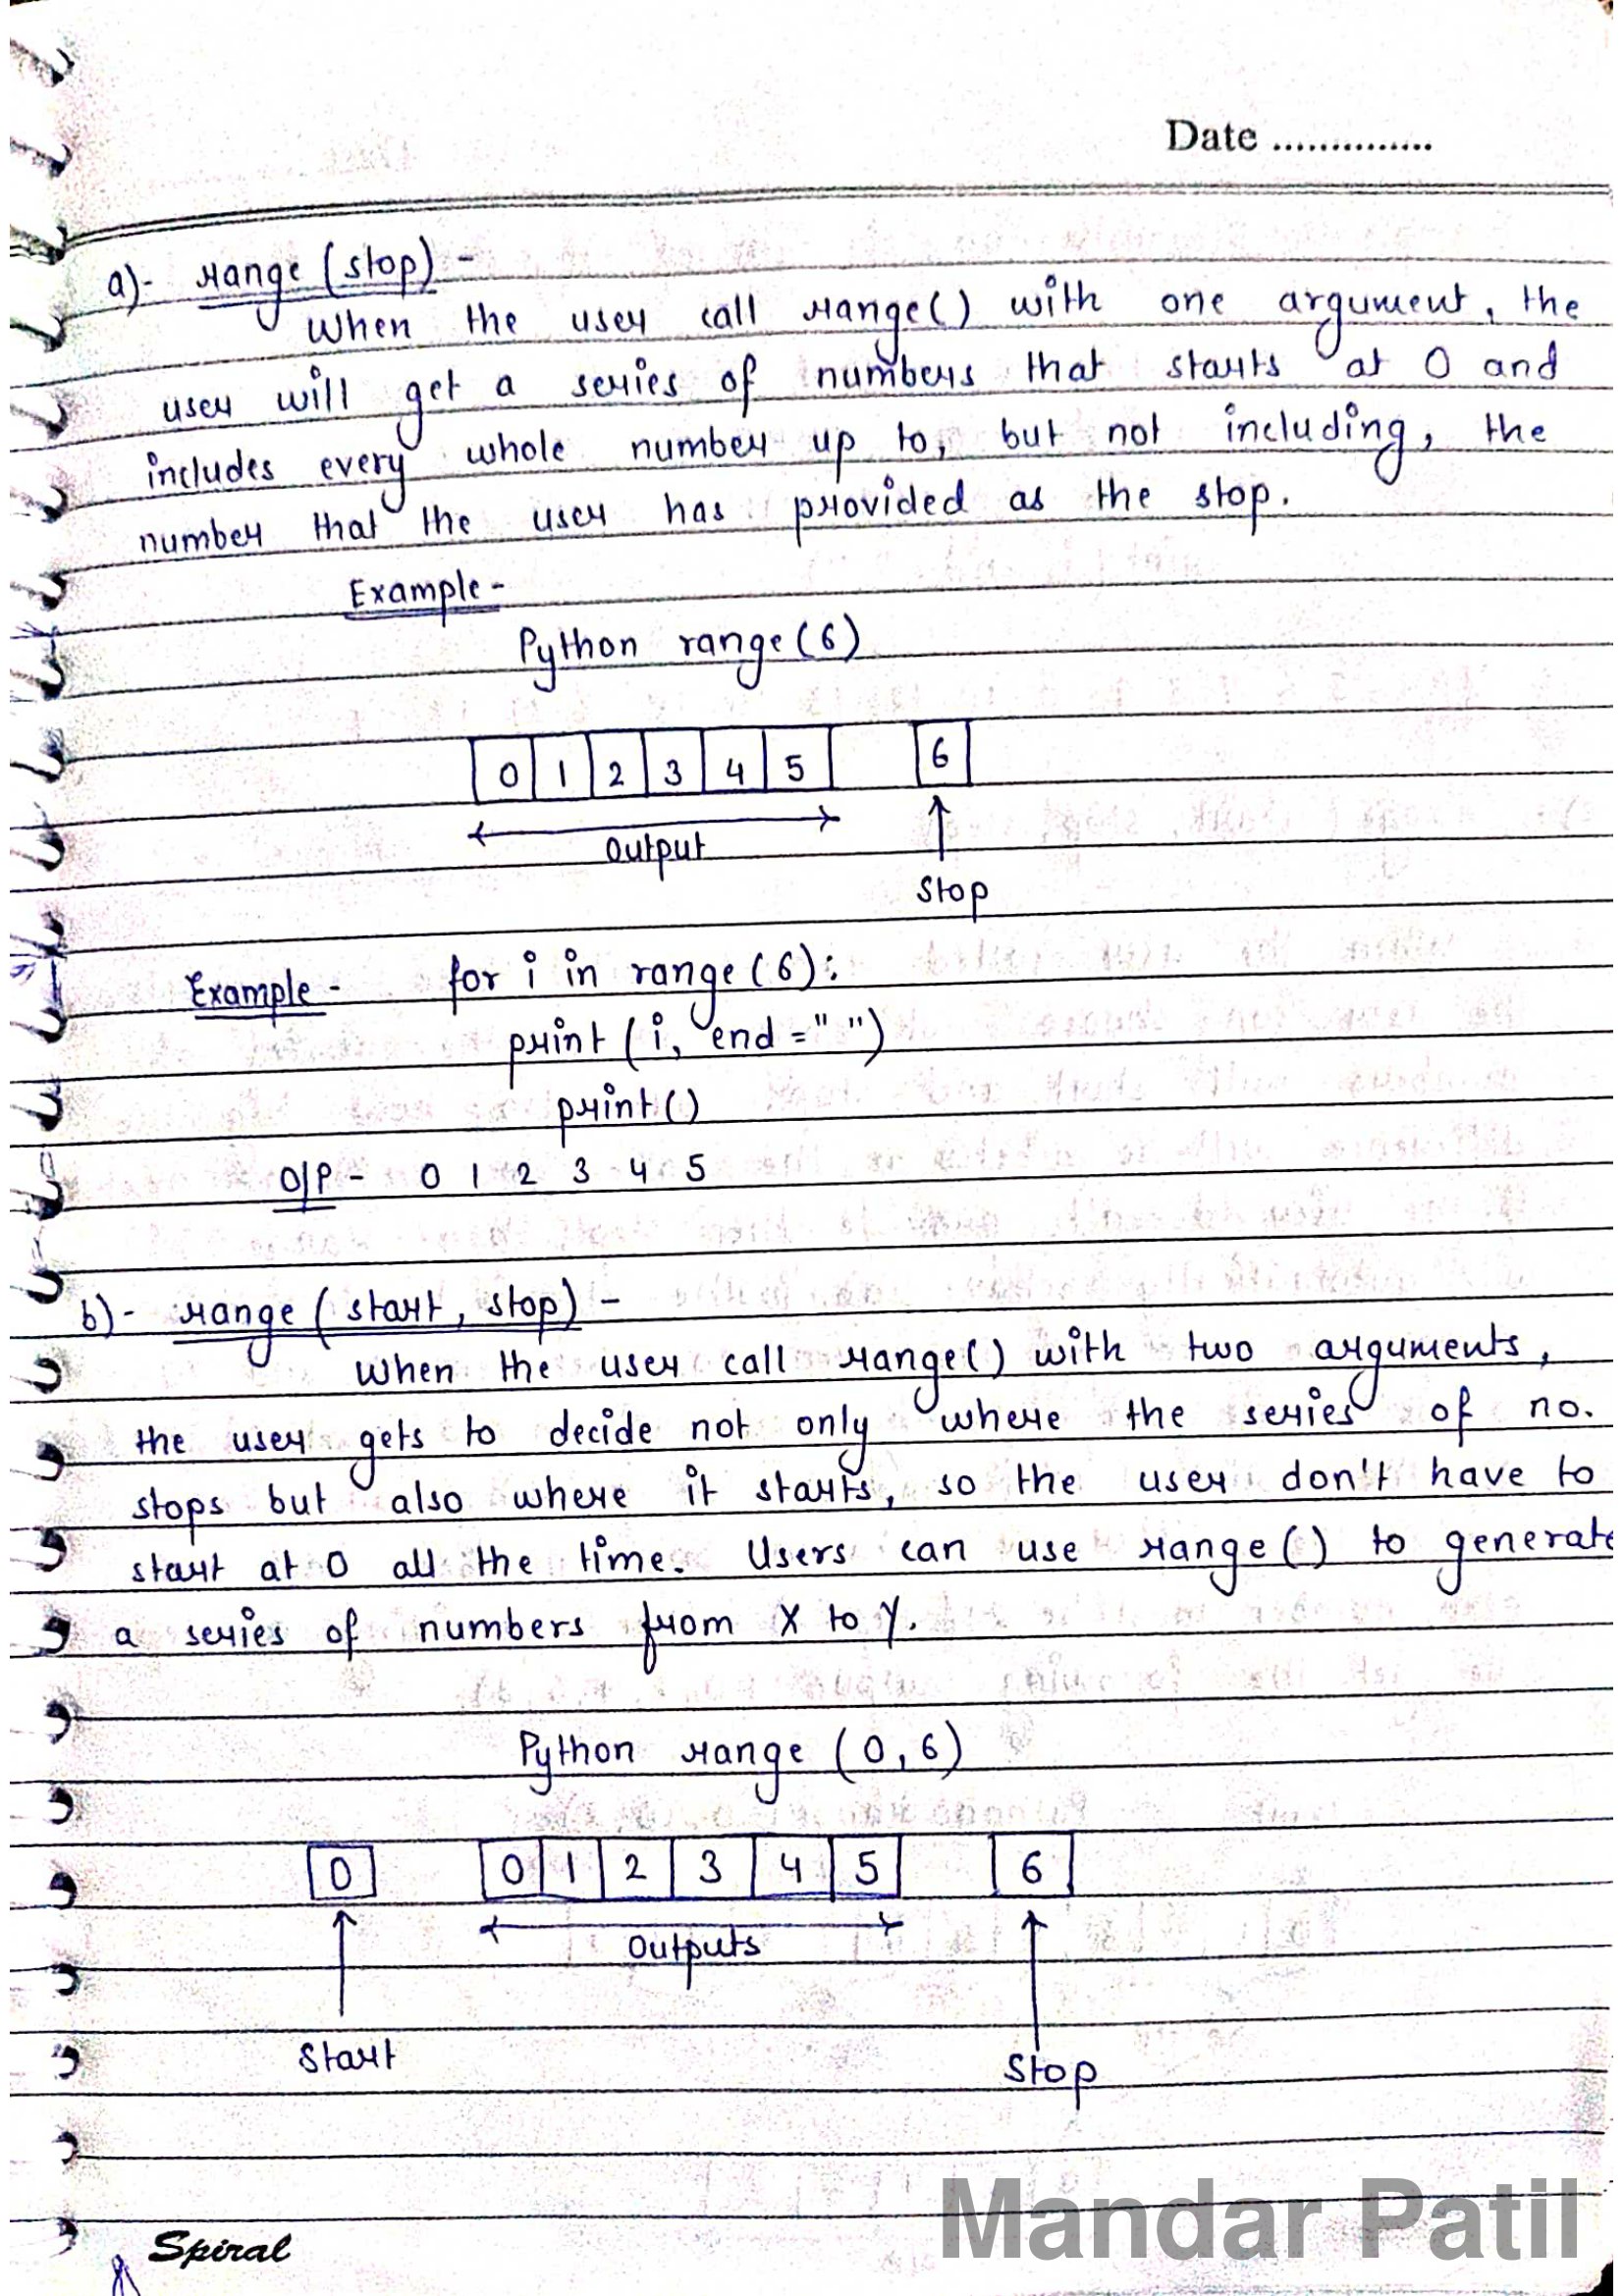 Date ..............
a)- range (stop) -
When the user call range() with one argument, the
user will get a series of numbers that starts at 0 and
includes every whole number up to, but not including, the
number that the user has provided as the stop.
Example -
Python range (6)
0 1 2 3 4 5 6
Output
Stop
Example - for i in range (6):
print (i, end = " ")
print ()
O/P - 0 1 2 3 4 5
b)- range ( start, stop) -
When the user call range() with two arguments,
the user gets to decide not only where the series of no.
stops but also where it starts, so the user don't have to
start at 0 all the time. Users can use range() to generate
a series of numbers from X to Y.
Python range (0,6)
0 0 1 2 3 4 5 6
Outputs
Start Stop
Mandar Patil
Spiral